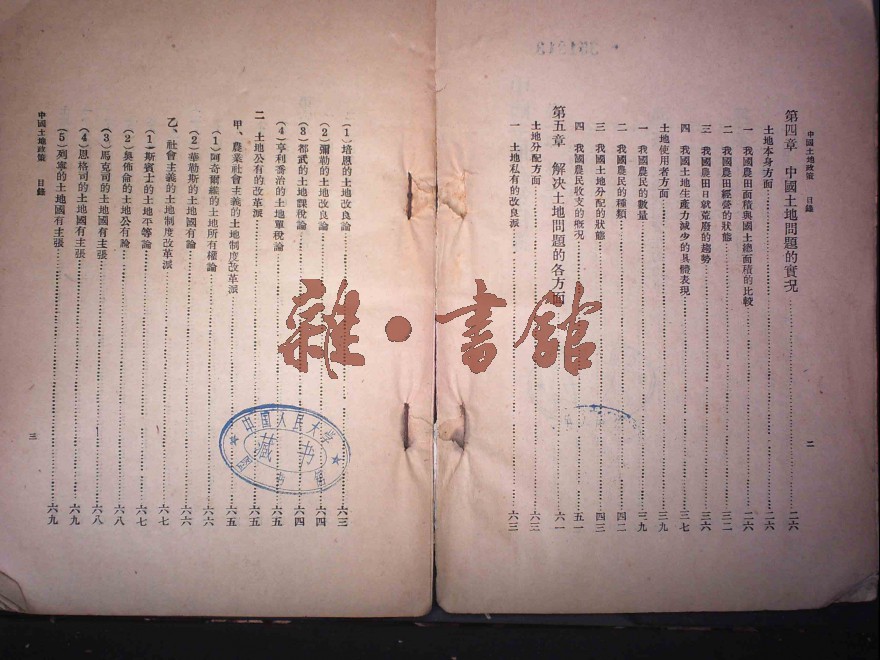 中國土地政策 目錄
二
第四章 中國土地問題的實况……二六
土地本身方面……二六
一 我國農田面積與國土總面積的比較……二六
二 我國農田經營的狀態……三二
三 我國農田日就荒廢的趨勢……三六
四 我國土地生產力減少的具體表現……三七
土地使用者方面……三九
一 我國農民的數量……三九
二 我國農民的種類……四二
三 我國土地分配的狀態……四三
四 我國農民收支的概况……五一
第五章 解决土地問題的各方面……六一
土地分配方面……六三
一 土地私有的改良派……六三
(1)培恩的土地改良論……六三
(2)彌勒的土地改良論……六四
(3)都武的土地課稅論……六四
(4)亨利喬治的土地單稅論……六五
二 土地公有的改革派……六五
甲、農業社會主義的土地制度改革派……六五
(1)阿奇爾維的土地所有權論……六六
(2)華勒斯的土地國有論……六六
乙、社會主義的土地制度改革派……六七
(1)斯賓士的土地平等論……六七
(2)奧佈倫的土地公有論……六八
(3)馬克司的土地國有主張……六八
(4)恩格司的土地國有主張……六九
(5)列寧的土地國有主張……六九
中國土地政策 目錄
三
雜·書館
中国人民大学
藏书